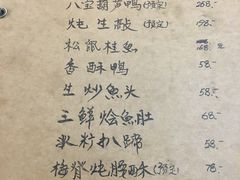 八宝葫芦鸭(预定) 268.-
炖生敲(预定) 58.-
松鼠桂鱼 168.-
香酥鸭 58.-
生炒鱼头 58.-
三鲜烩鱼肚 68.-
扒蹄 58.-
炖 酥(预定) 78.-